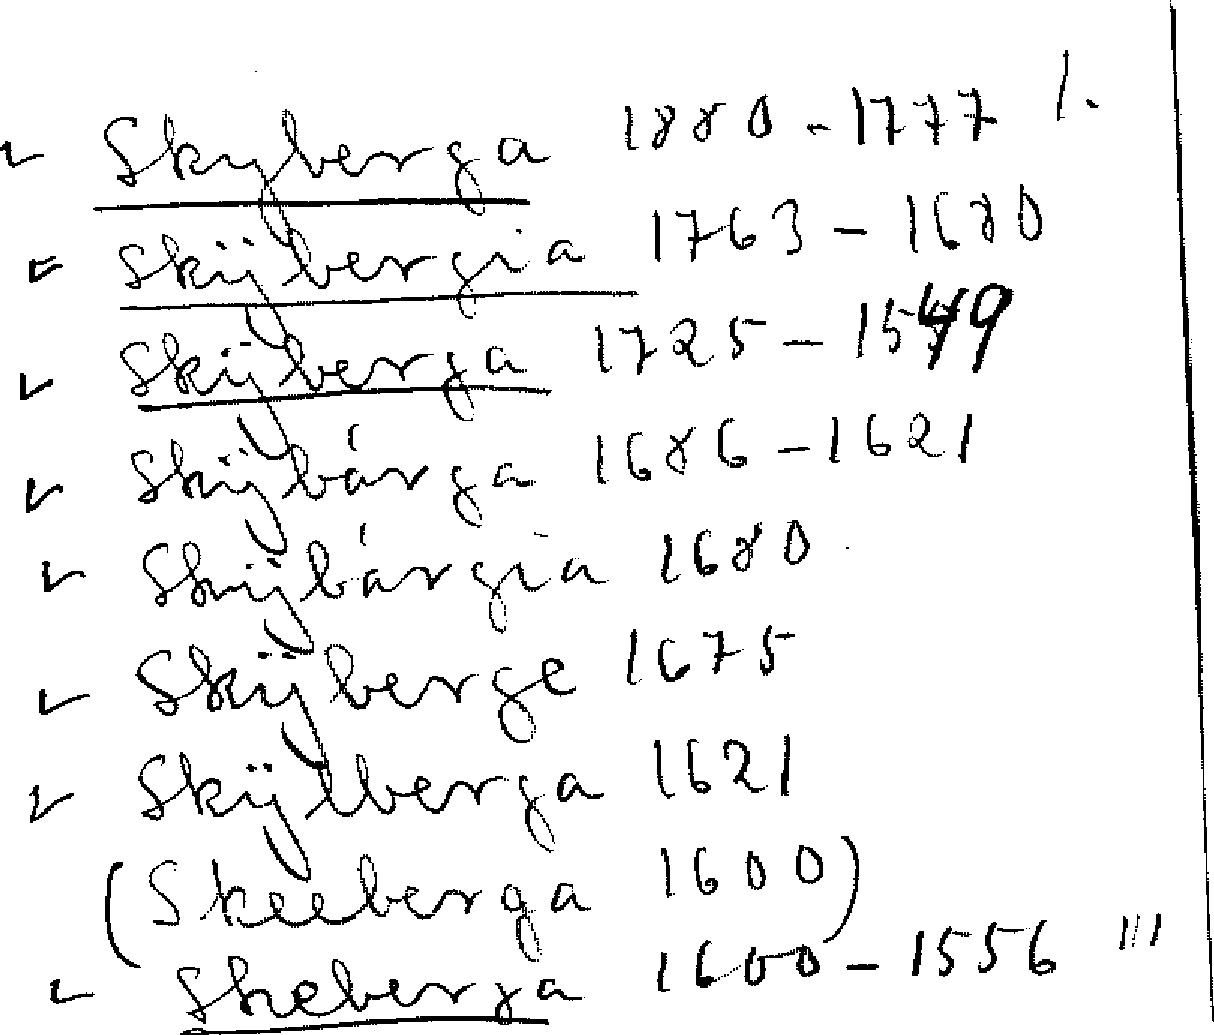 ✓ Skyberga 1880-1777 1.
✓ Skÿbergia 1763-1680
✓ Skÿberga 1725-1549
✓ Skÿbárga 1686-1621
✓ Skÿbárgia 1680
✓ Skÿberge 1675
✓ Skÿlberga 1621
(Skeeberga 1600)
✓ Skeberga 1600-1556 111